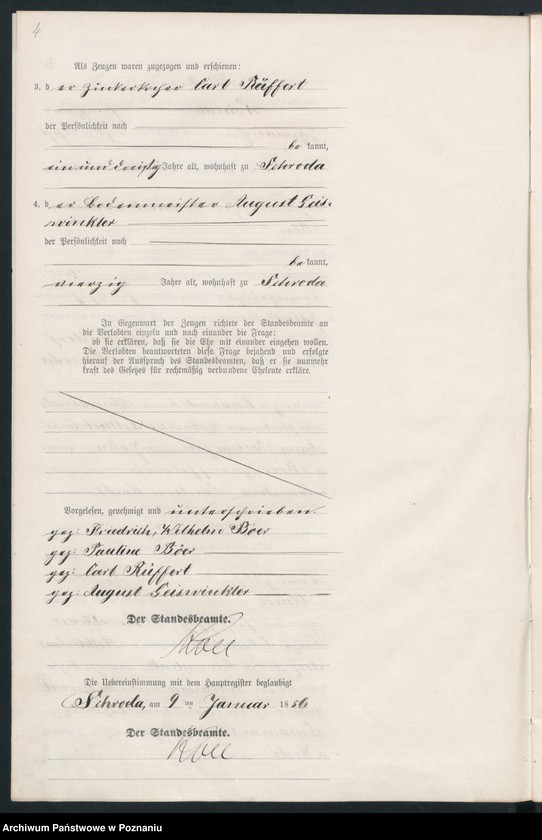 4
Als Zeugen waren zugezogen und erschienen:
3. der Zuckerkocher Carl Rüffert
der Persönlichkeit nach
be kannt,
ein und dreißig Jahre alt, wohnhaft zu Schroda
4. der Bodenmeister August Geis-
winkler
der Persönlichkeit nach
be kannt,
vierzig Jahre alt, wohnhaft zu Schroda
In Gegenwart der Zeugen richtete der Standesbeamte an
die Verlobten einzeln und nach einander die Frage:
ob sie erklären, daß sie die Ehe mit einander eingehen wollen.
Die Verlobten beantworteten diese Frage bejahend und erfolgte
hierauf der Ausspruch des Standesbeamten, daß er sie nunmehr
kraft des Gesetzes für rechtmäßig verbundene Eheleute erkläre.
Vorgelesen, genehmigt und unterschrieben
gez: Friedrich, Wilhelm Böer
gez: Pauline Böer
gez: Carl Rüffert
gez: August Geiswinkler
Der Standesbeamte.
Die Uebereinstimmung mit dem Hauptregister beglaubigt
Schroda, am 9 ten Januar 1886
Der Standesbeamte.
Archiwum Państwowe w Poznaniu